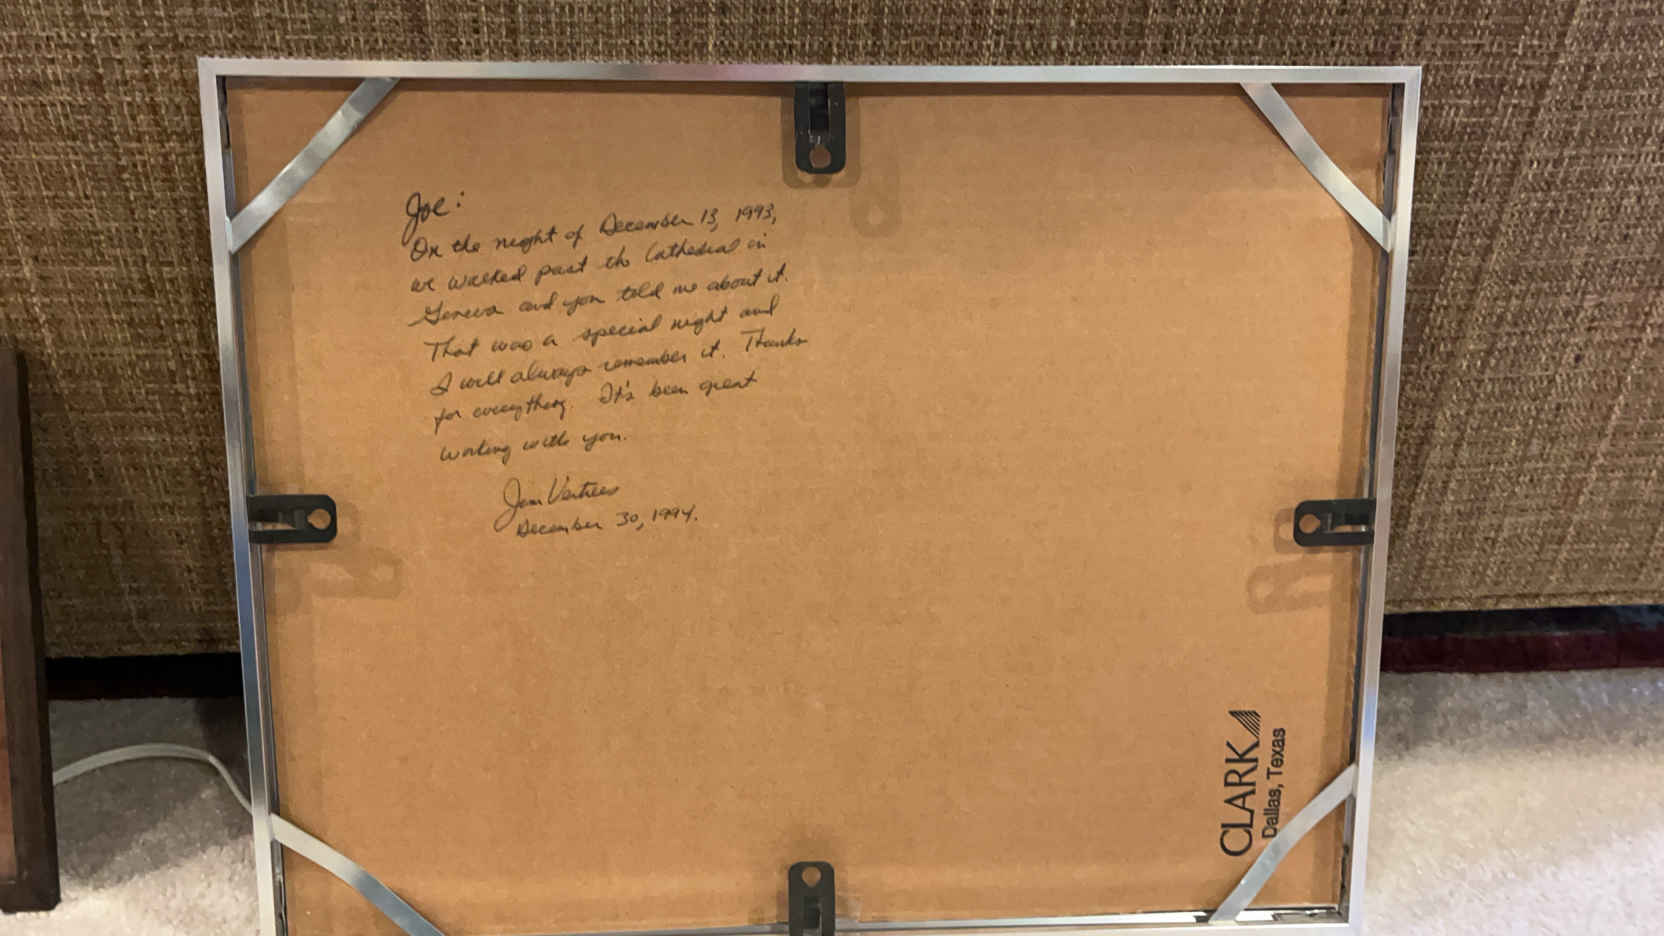 Joe:
On the night of December 13, 1993,
we walked past the Cathedral in
Geneva and you told me about it.
That was a special night and
I will always remember it. Thanks
for everything. It's been great
working with you.
December 30, 1994.
CLARK
Dallas, Texas